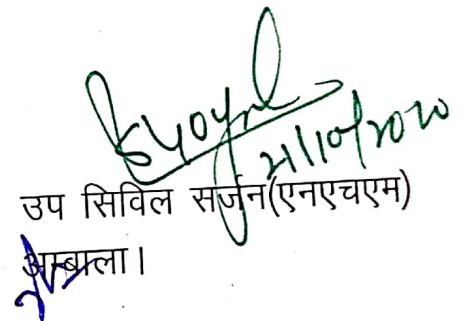 21/10/2020
उप सिविल सर्जन(एनएचएम)
अम्बाला।